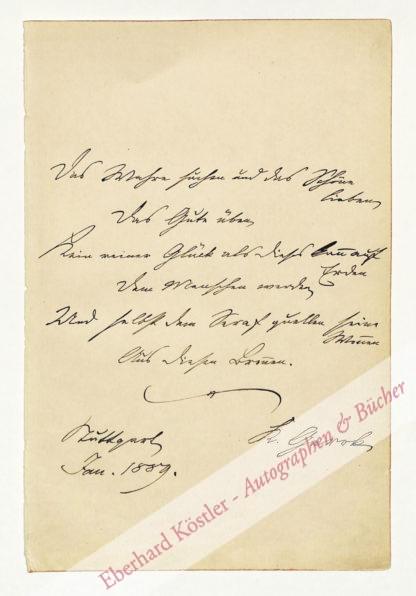 Das Wahre suchen und das Schöne
lieben,
Das Gute üben,
Kein reiner Glück als dieß kann auf
Erden
Dem Menschen werden,
Und selbst dem Seraf quellen seine
Wonnen
Aus diesen Bronnen.
Stuttgart
Jan. 1889.
K. Gerok
Eberhard Köstler - Autographen & Bücher